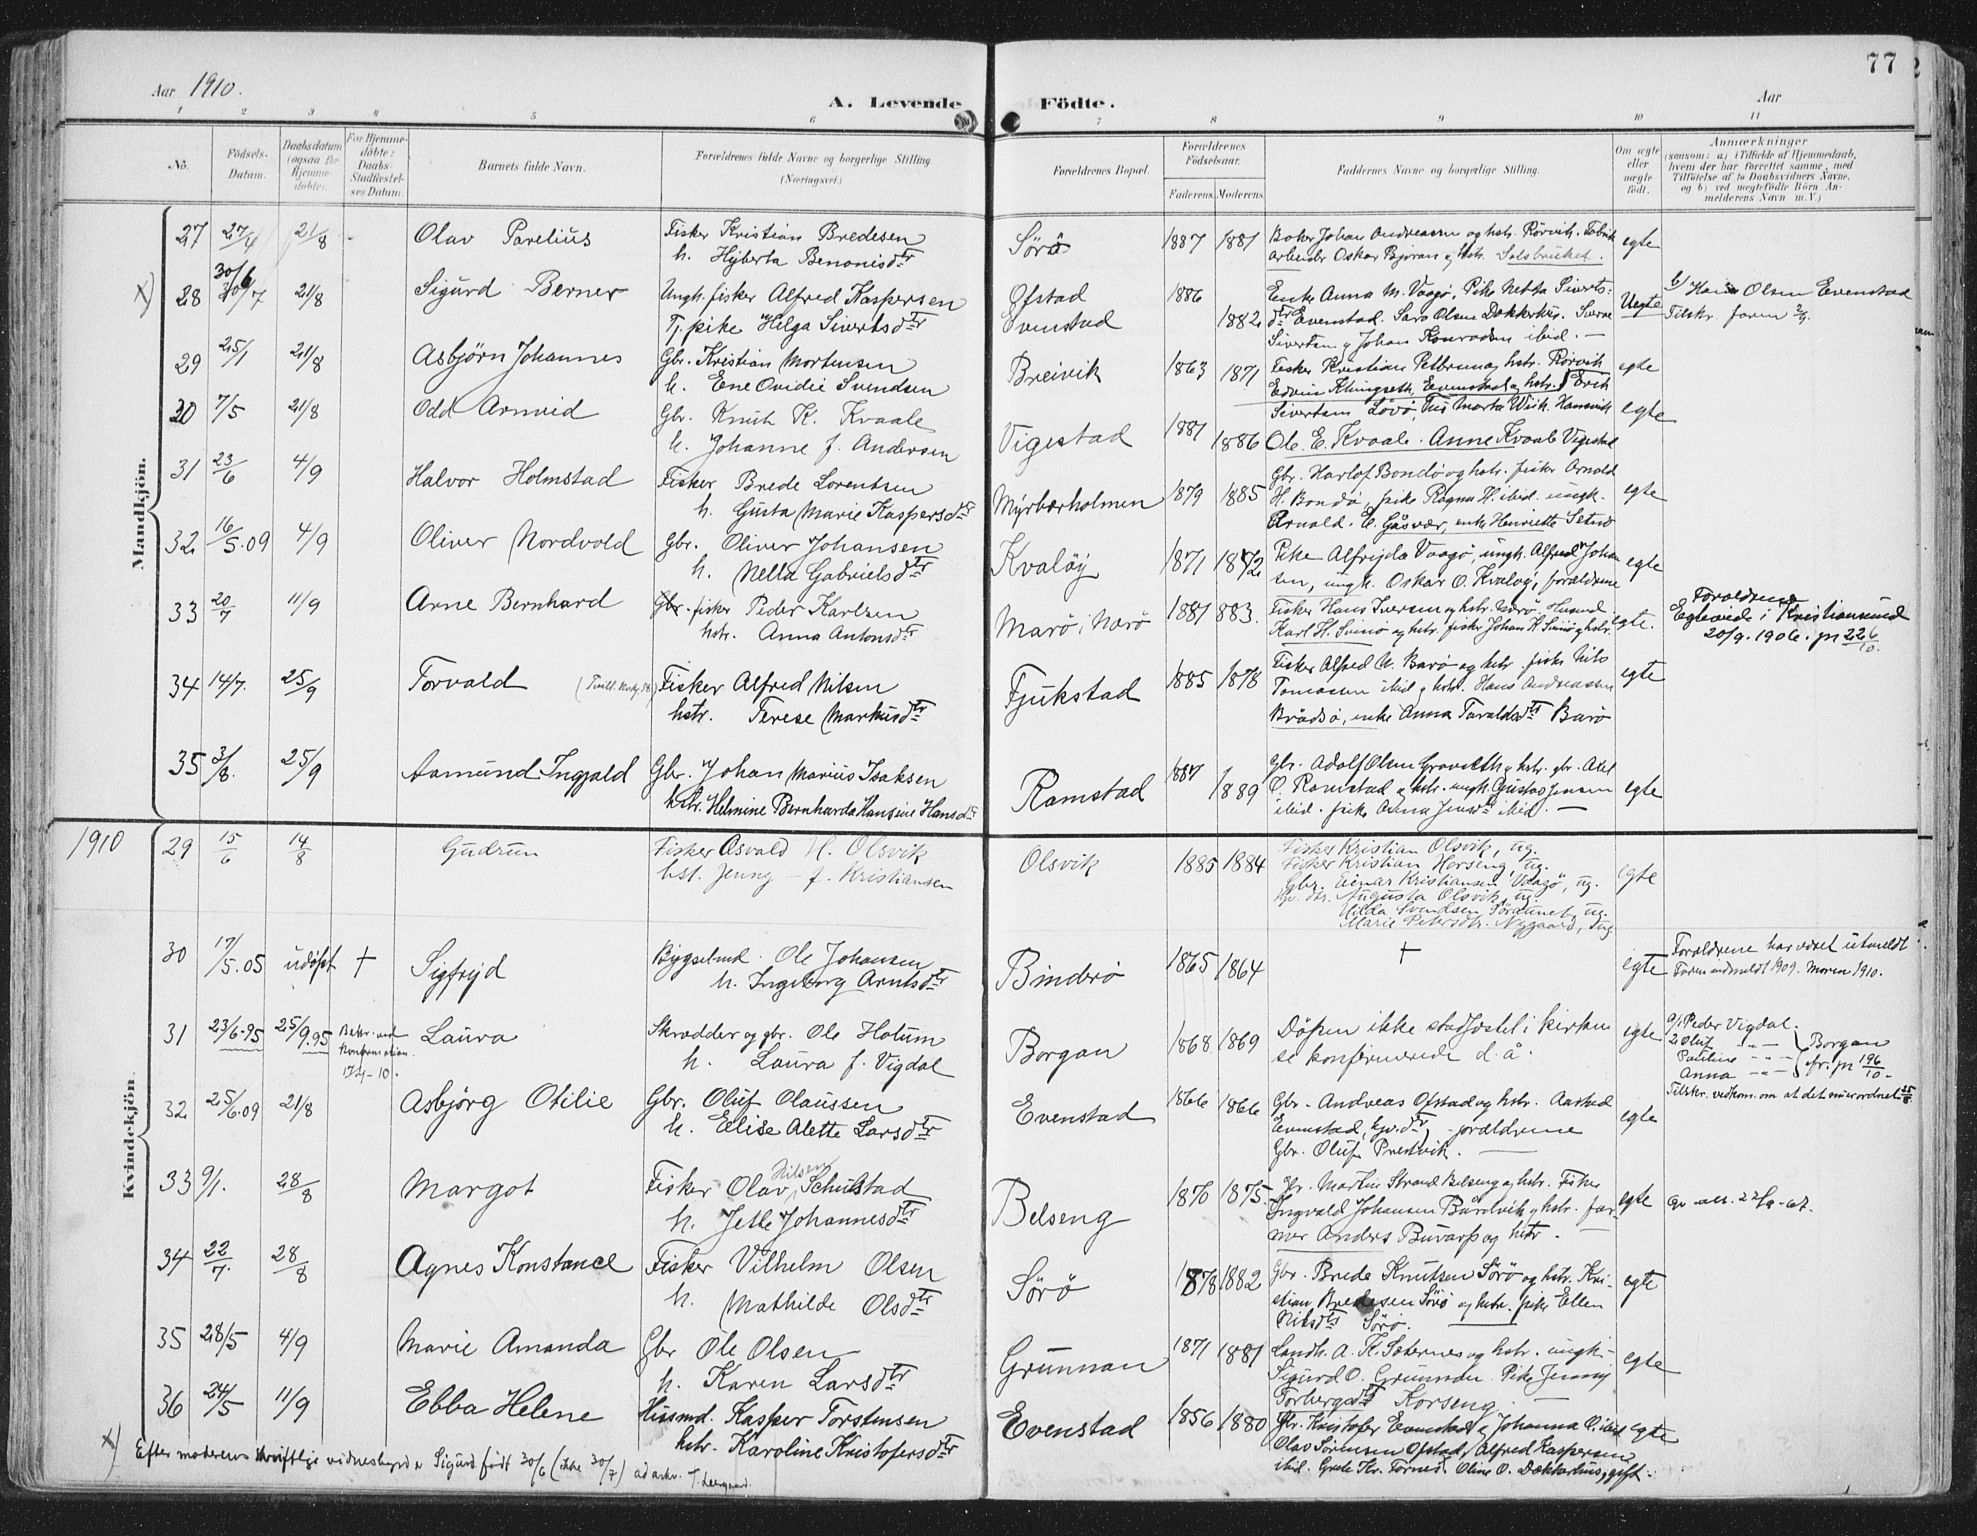 Aar 1910.
A. Levende
Födte.
Aar
77
1 2 3 4 5 6 7 8 9 10 11
No.
Födsels-Datum.
Daabsdatum (ogsaa for Hjemmedöbte).
For Hjemmedöbte: Daabs-Stadfæstelses Datum.
Barnets fulde Navn.
Forældrenes fulde Navne og borgerlige Stilling. (Næringsvei.)
Forældrenes Bopæl.
Forældrenes Födselsaar.
Faderens. Moderens.
Faddernes Navne og borgerlige Stilling.
Om ægte eller uægte födt.
Anmærkninger
(saasom: a) i Tilfælde af Hjemmedaab, hvem der har forrettet samme, med Tilföielse af to Daabsvidners Navne, og b) ved uegtefödte Börn Anmelderens Navn m.V.)
Mandkjön.
27 27/4 21/8 - Olav Parelius Fisker Kristian Bredesen Sørø 1887 1881 egte
h. Hyberta Benonisdtr arbeider Oskar Bjøran og hstr. Salsbruket.
x) 28 30/6 21/8 Sigurd Berner Ungk. fisker Alfred Kaspersen Ofstad 1886 Enke Anna M. Vaagø, Pike Netta Siverts- Uegte b/ Olsen Evenstad
Tj. pike Helga Sivertsdtr Evenstad 1882 dtr Evenstad. Sara Olsen Dekkerhus. Tilskr. faren
Sivertsen og Johan Konradsen ibid. —
29 25/1 21/8 Asbjörn Johannes Gbr. Kristian Mortensen Breivik 1863 1871 Fisker Kristian Pettersen og hstr. Rørvik egte
h. Ene Ovidie Svendsen Edvin Klingseth Evenstad og hstr. Erik
30 7/5 21/8 Odd Arnvid Gbr. Knut K. Kvaale Vigestad 1881 1886 Sivertsen Lövö, Marta Wiik. egte
h. Johanne f. Andersen Ole E. Kvaale. Anne Kvaale Vigestad
31 23/6 4/9 Halvor Holmstad Fisker Brede Lorentsen Myrbærholmen 1879 1885 Gbr. Bondö og hstr. fisker Arnold egte
h. Gusta Marie Kaspersdtr H. Bondö, pike Ragna H. ibid. ungk.
Arnold. E. Gåsvær, enke Henriette Setnø
32 16/5.09 4/9 Oliver Nordvold Gbr. Oliver Johansen Kvaløy 1871 1872 Pike Alfrijda Vaagø, ungk. Alfred Johan egte
h. Nella Gabrielsdtr sen, ungk. Oskar O. Kvaløy, forældrene
33 20/7 11/9 Arne Bernhard Gbr. fisker Peder Karlsen Marö i Nærö 1881 883. Fisker Hans Iversen og hstr. egte. Forældrene
hstr. Anna Antonsdtr Karl H. Svinö og hstr. fisker Johan K. Svinö og hstr. Egteviede i Kristiansund
20/9. 1906. jr 226/10.
34 14/7. 25/9 Torvald Fisker Alfred Nilsen Fjukstad 1885 1878 Fisker Alfred N. Barö og hstr. fisker Nils egte
hstr. Terese Markusdtr Tomasen ibid og hstr. Hans Andreassen
Brådsö, enke Anna Taraldsdtr Barö
35 3/8. 25/9 Aamund Ingvald Gbr. Johan Marius Isaksen Ramstad 1887 1889 Gbr. Adolf Olsen Graveth og hstr. gbr. Axel egte
hstr. Helmine Bernharda Hansine Hansdtr O. Ramstad og hstr. ungk. Gustav Jensen
ibid. pike Anna Jensdtr ibid. —
Kvindekjön
1910 29 15/6 14/8 Gudrun Fisker Asvald H. Olsvik Olsvik 1885 1884 Fisker Kristian Olsvik, ug. egte
hst. Jenny — f. Kristiansen Fisker Kristian Horseng, ug.
Gbr. Einar Kristiansen Vaagø, ug.
Augusta Olsvik, ug.
Hilda Svendsen Sørdunet, ug.
Marie Petersdtr. Nygaard, ug
30 17/5.05 udöpt + Sigfrijd Bygselmd. Ole Johansen Bindrö 1865 1864 + egte Forældrene har været utmeldt.
h. Ingeborg Arntsdtr Faren indmeldt 1909. Moren 1910.
31 23/6.95 25/9.95 Bekr. ved konfirmation Laura Skrædder og gbr. Ole Hotum Borgan 1868 1869 Döpen ikke stadfæstet i kirken egte a/1 Peder Vigdal.
h. Laura f. Vigdal se konfirmerede d. å. 2 Oluf — " — Borgan
Pauline — " —
Anna — " — jr 196/10.
32 25/6.09 21/8 Asbjørg Otilie Gbr. Oluf Olaussen Evenstad 1866 1866 Gbr. Andreas Ofstad og hstr. Aastad egte Tilskr. vedkom. om at det er uordnet 25/8.
h. Elise Alette Larsdtr Evenstad, - forældrene
Gbr. Oluf Prestvik. —
33 9/1. 28/8 Margot Fisker Olav Nilsen Schulstad Belseng 1876 1875 Gbr. Martin Strand Belseng og hstr. Fisker egte
h. Jette Johannesdtr Ingvald Johansen Bårdvik og hstr. far-
mer Anders Buvarp og hstr.
34 22/7. 28/8 Agnes Konstance Fisker Vilhelm Olsen Sörö 1878. 1882 Gbr. Brede Knutsen Sörö og hstr. Kri- egte
h. Mathilde Olsdtr stian Bredesen Sörö og hstr. pike Ellen
Nilsdtr Sörö.
35 28/5 4/9 Marie Amanda Gbr Ole Olsen Grunnan 1871 1881 Landh. A. K. Seternes og hstr. ungk. egte
h. Karen Larsdtr Sigurd O. Grunnan. Pike Jenny
Torbergsdtr Korseng.
36 24/5 11/9 Ebba Helene Husmd. Kasper Torstensen Evenstad 1856 1880 Gbr. Kristofer Evenstad og Johanna O. ibid egte
hstr. Karoline Kristofersdtr Olav Sörensen Ofstad, Alfred Kaspersen
ibid. Grete Kr. Tornes. Oline O. Dekkerhus, gift.
x) Efter moderens skriftlige vidnesbyrd er Sigurd født 30/6 (ikke 30/7)